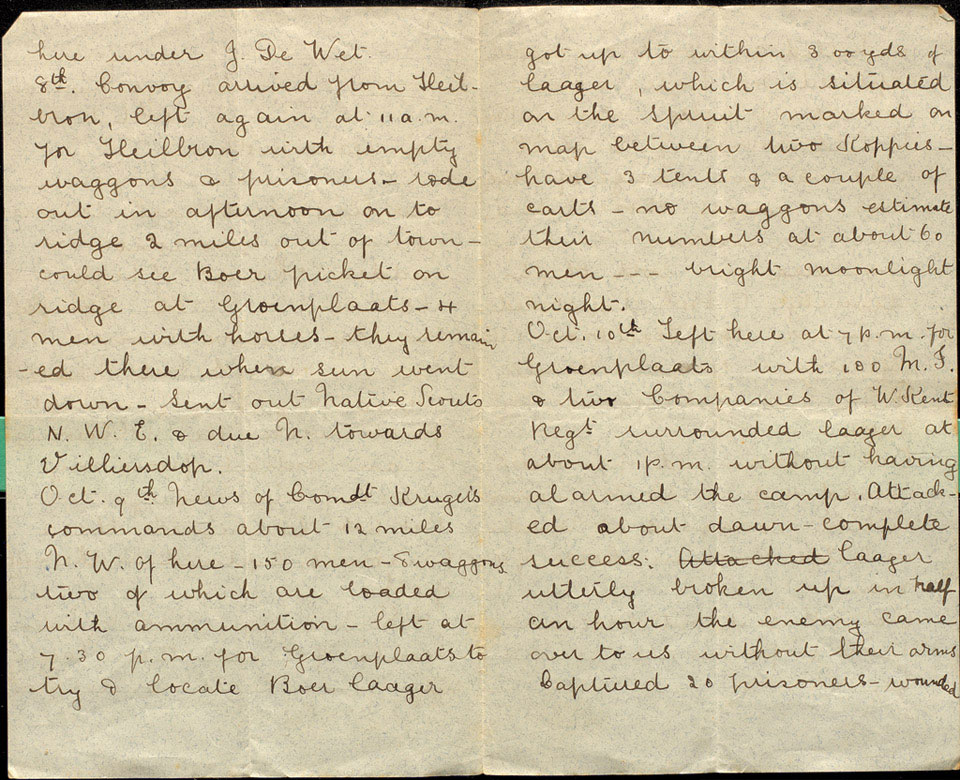 here under J. De Wet.
8th. Convoy arrived from Heil-
bron, left again at 11 a.m.
for Heilbron with empty
waggons & prisoners - rode
out in afternoon on to
ridge 2 miles out of town -
could see Boer picket on
ridge at Groenplaats - 4
men with horses - they remain
-ed there when sun went
down - Sent out Native Scouts
N. W. E. & due N. towards
Villiersdop.
Oct. 9th News of Comdt Kruger's
commands about 12 miles
N. W. of here - 150 men - 8 waggons
two of which are loaded
with ammunition - left at
7.30 p.m. for Groenplaats to
try & locate Boer laager
got up to within 300 yds of
laager, which is situated
on the spruit marked on
map between two Koppies -
have 3 tents & a couple of
carts - no waggons estimate
their numbers at about 60
men --- bright moonlight
night.
Oct. 10th Left here at 7 p.m. for
Groenplaats with 100 M.I.
& two Companies of W. Kent
Regt surrounded laager at
about 1 p.m. without having
alarmed the camp. Attack-
ed about dawn - complete
success. Attacked laager
utterly broken up in half
an hour the enemy came
over to us without their arms
Captured 20 prisoners - wounded